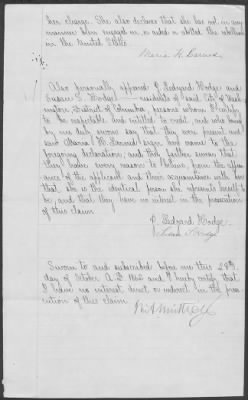 her charge. She also declares that she has not in any
manner been engaged in, or aided or abetted, the rebellion
in the United States.
Maria H. Larned
Also personally appeared P. Ledyard Hodge and
Susan S. Hodge residents of said City of Wash-
ington, District of Columbia persons whom I certify
to be respectable and entitled to credit, and who being
by me duly sworn say that they were present and
said Maria H. Larned sign her name to the
foregoing declaration; and they further swear that
they have every reason to believe, from the appear-
ance of the applicant and their acquaintance with her
that she is the identical person she represents herself to
be; and that they have no interest in the prosecution
of this claim.
Ledyard Hodge
Susan S. Hodge
Sworn to and subscribed before me this 28th
day of October A.D. 1862 and I hereby certify that
I have no interest, direct or indirect in the prose-
cution of this claim.